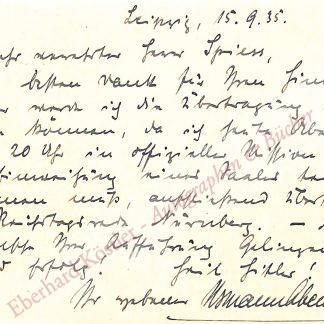 Leipzig, 15. 9. 35.
ehr verehrter Herr Spiess,
besten Dank für Ihren Hin
er werde ich die Übertragung
n können, da ich heute Abe
20 Uhr in offizieller Mission
Einweihung eines Saales
men muß, anschließend Übert
Reichstagsrede Nürnberg. –
Ihrer Aufführung Gelingen
Erfolg. Heil Hitler!
Ihr ergebener
Eberhard Köstler - Autographen & Bücher